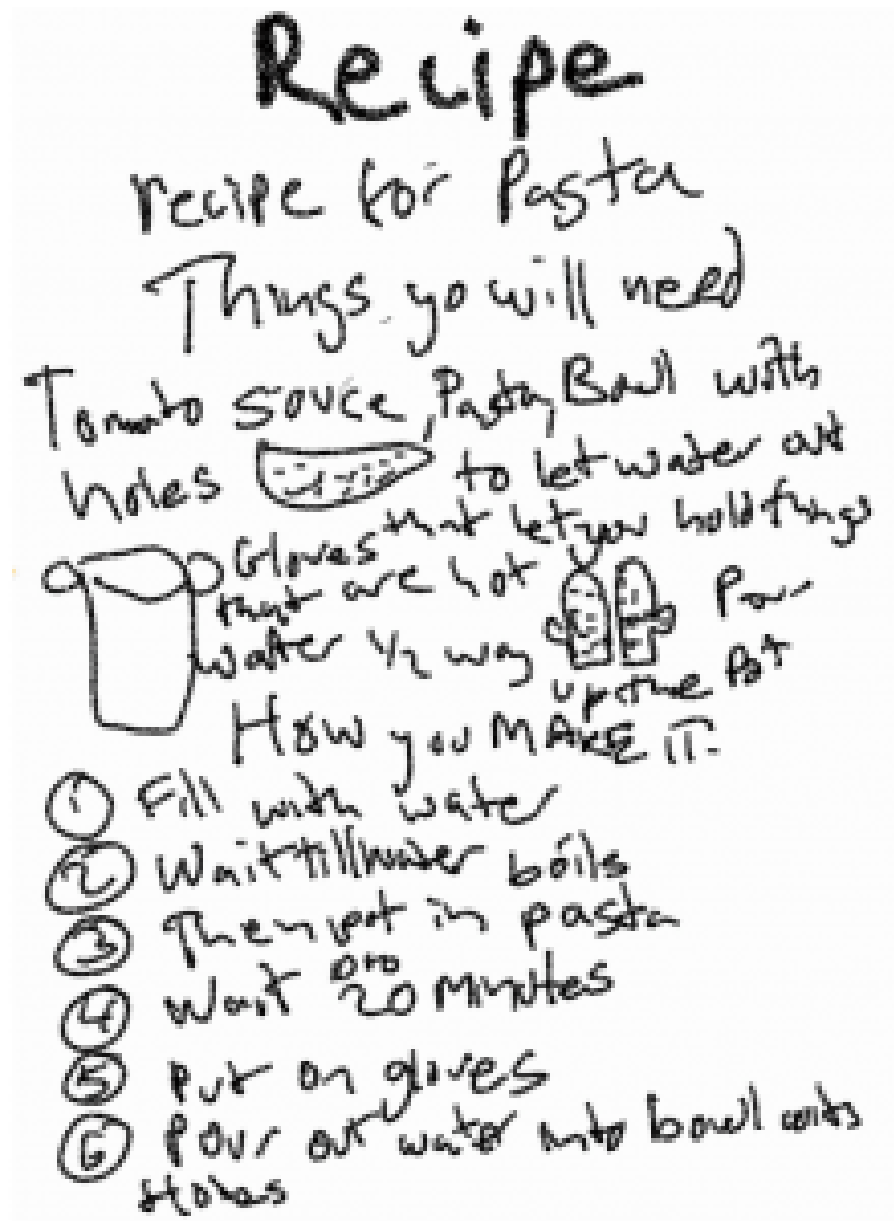 Recipe
recipe for Pasta
Things yo will need
Tomato souce, Pasta, Bowl with
holes to let water out
Gloves that let you hold things
that are hot Pour
water 1/2 way up the Pot
How you MAKE IT.
1 Fill with water
2 Wait till water boils
3 Then put in pasta
4 Wait 20 Minutes
5 Put on gloves
6 Pour out water into bowl with
Holes